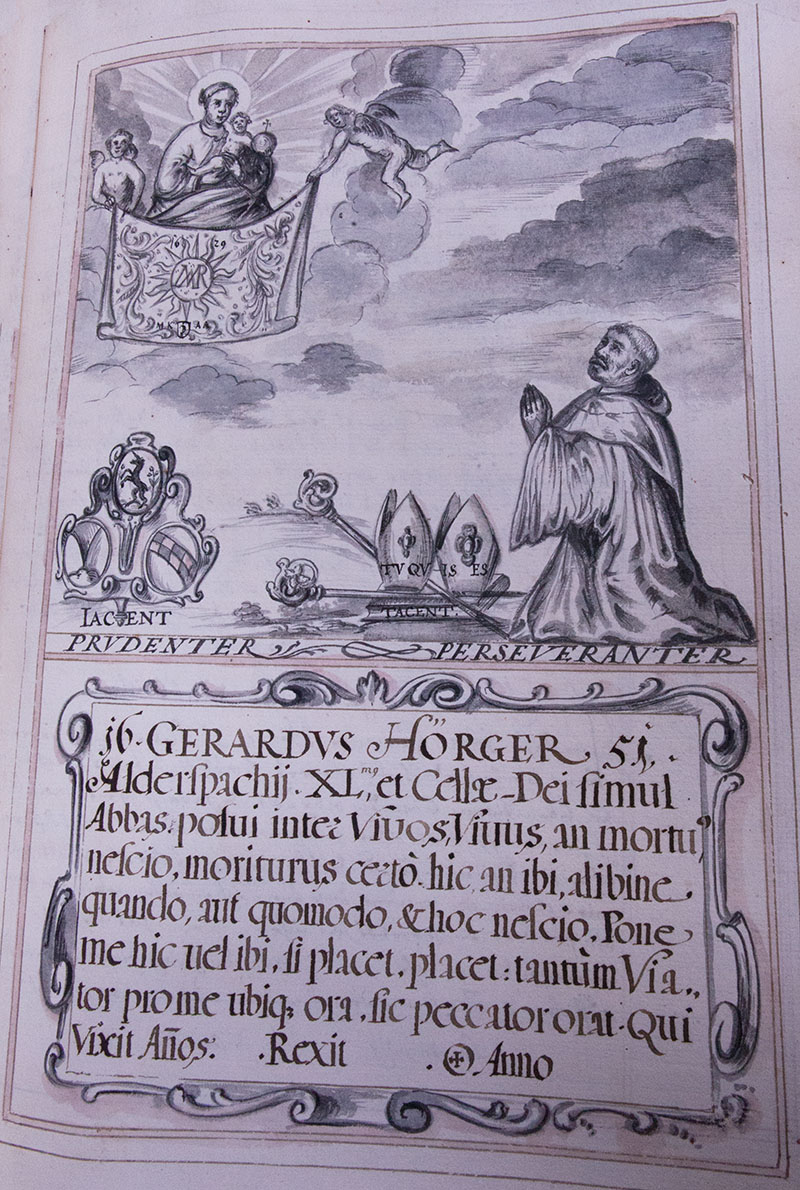 16 29
MAR
M K A A
TV QV IS ES
IACENT
TACENT.
PRVDENTER PERSEVERANTER
16. GERARDVS HÖRGER 51.
Alderspachij. XL,mꝰ et Cellæ-Dei simul
Abbas. posui inter Viūos, Viuus, an mortuꝰ,
nescio, moriturus certò. hic an ibi, alibine
quando, aut quomodo, & hoc nescio. Pone
me hic uel ibi, si placet, placet: tantùm Via-
tor pro me ubiq; ora, sic peccator orat. Qui
Vixit Años: .Rexit . Anno